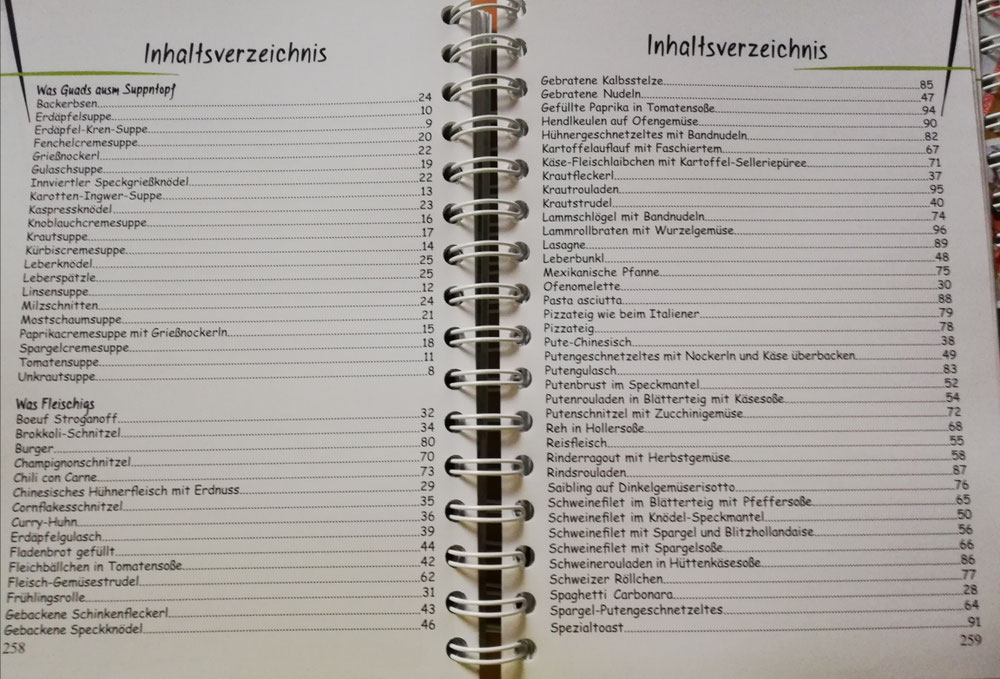 Inhaltsverzeichnis
Was Guads ausm Suppntopf
Backerbsen 24
Erdäpfelsuppe 10
Erdäpfel-Kren-Suppe 9
Fenchelcremesuppe 20
Grießnockerl 22
Gulaschsuppe 19
Innviertler Speckgrießknödel 22
Karotten-Ingwer-Suppe 13
Kaspressknödel 23
Knoblauchcremesuppe 16
Krautsuppe 17
Kürbiscremesuppe 14
Leberknödel 25
Leberspätzle 25
Linsensuppe 12
Milzschnitten 24
Mostschaumsuppe 21
Paprikacremesuppe mit Grießnockerln 15
Spargelcremesuppe 18
Tomatensuppe 11
Unkrautsuppe 8
Was Fleischigs
Boeuf Stroganoff 32
Brokkoli-Schnitzel 34
Burger 80
Champignonschnitzel 70
Chili con Carne 73
Chinesisches Hühnerfleisch mit Erdnuss 29
Cornflakesschnitzel 35
Curry-Huhn 36
Erdäpfelgulasch 39
Fladenbrot gefüllt 44
Fleichbällchen in Tomatensoße 42
Fleisch-Gemüsestrudel 62
Frühlingsrolle 31
Gebackene Schinkenfleckerl 43
Gebackene Speckknödel 46
258
Inhaltsverzeichnis
Gebratene Kalbsstelze 85
Gebratene Nudeln 47
Gefüllte Paprika in Tomatensoße 94
Hendlkeulen auf Ofengemüse 90
Hühnergeschnetzeltes mit Bandnudeln 82
Kartoffelauflauf mit Faschiertem 67
Käse-Fleischlaibchen mit Kartoffel-Selleriepüree 71
Krautfleckerl 37
Krautrouladen 95
Krautstrudel 40
Lammschlögel mit Bandnudeln 74
Lammrollbraten mit Wurzelgemüse 96
Lasagne 89
Leberbunkl 48
Mexikanische Pfanne 75
Ofenomelette 30
Pasta asciutta 88
Pizzateig wie beim Italiener 79
Pizzateig 78
Pute-Chinesisch 38
Putengeschnetzeltes mit Nockerln und Käse überbacken 49
Putengulasch 83
Putenbrust im Speckmantel 52
Putenrouladen in Blätterteig mit Käsesoße 54
Putenschnitzel mit Zucchinigemüse 72
Reh in Hollersoße 68
Reisfleisch 55
Rinderragout mit Herbstgemüse 58
Rindsrouladen 87
Saibling auf Dinkelgemüserisotto 76
Schweinefilet im Blätterteig mit Pfeffersoße 65
Schweinefilet im Knödel-Speckmantel 50
Schweinefilet mit Spargel und Blitzhollandaise 56
Schweinefilet mit Spargelsoße 66
Schweinerouladen in Hüttenkäsesoße 86
Schweizer Röllchen 77
Spaghetti Carbonara 28
Spargel-Putengeschnetzeltes 64
Spezialtoast 91
259